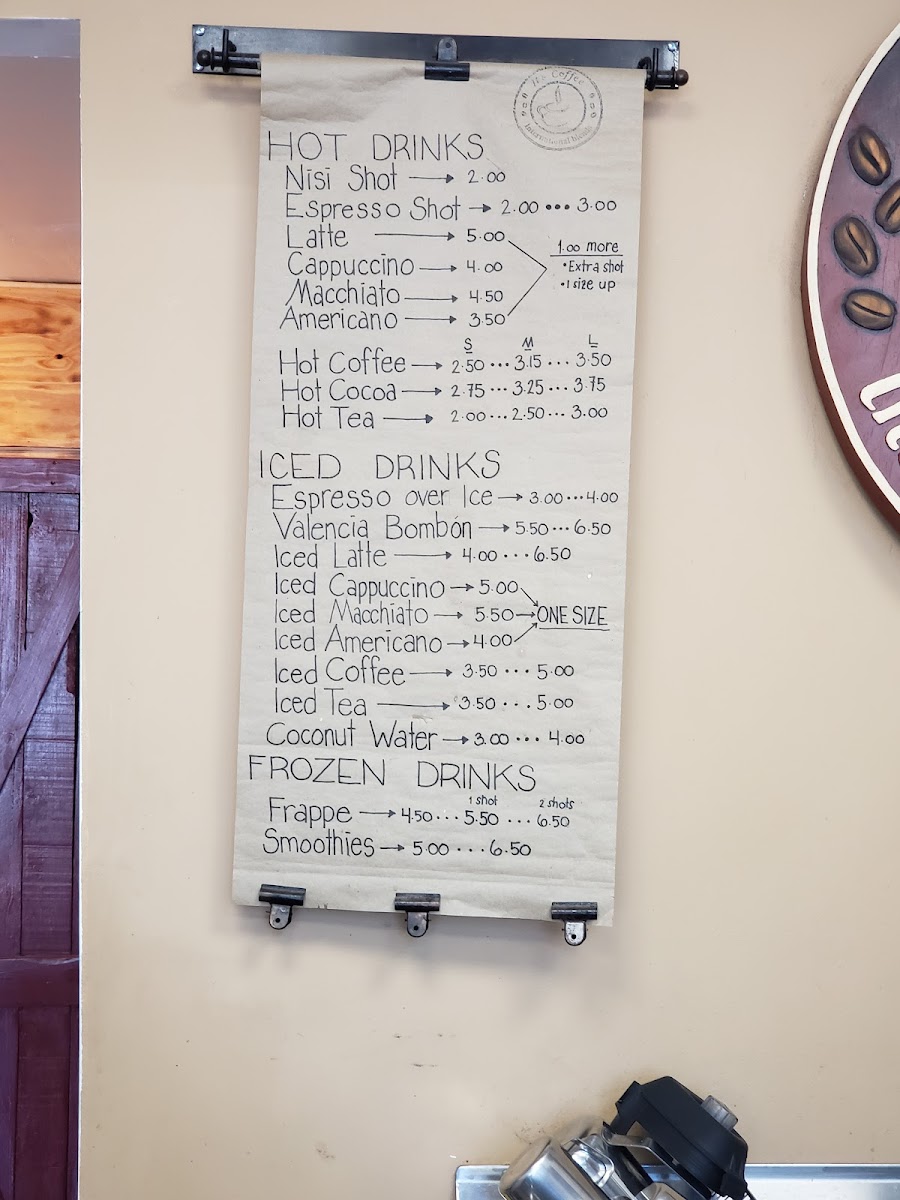 Coffee
International
HOT DRINKS
Nisi Shot → 2.00
Espresso Shot → 2.00 ••• 3.00
Latte → 5.00
1.00 more
• Extra shot
• 1 size up
Cappuccino → 4.00
Macchiato → 4.50
Americano → 3.50
S M L
Hot Coffee → 2.50 ••• 3.15 ... 3.50
Hot Cocoa → 2.75 ••• 3.25 ... 3.75
Hot Tea → 2.00 ... 2.50 ... 3.00
ICED DRINKS
Espresso over Ice → 3.00 ••• 4.00
Valencia Bombón → 5.50 ... 6.50
Iced Latte → 4.00 ... 6.50
Iced Cappuccino → 5.00
Iced Macchiato → 5.50 → ONE SIZE
Iced Americano → 4.00
Iced Coffee → 3.50 ... 5.00
Iced Tea → 3.50 ... 5.00
Coconut Water → 3.00 ... 4.00
FROZEN DRINKS
1 shot 2 shots
Frappe → 4.50 ... 5.50 ... 6.50
Smoothies → 5.00 ... 6.50